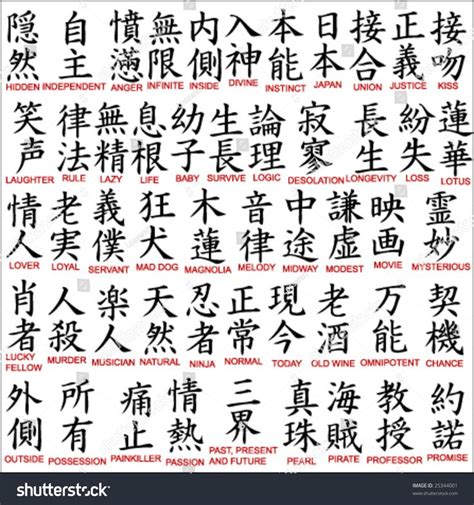 隠 自 憤 無 内 入 本 日 接 正 接
然 主 懣 限 側 神 能 本 合 義 吻
HIDDEN INDEPENDENT ANGER INFINITE INSIDE DIVINE INSTINCT JAPAN UNION JUSTICE KISS
笑 律 無 息 幼 生 論 寂 長 紛 蓮
声 法 精 根 子 長 理 寥 生 失 華
LAUGHTER RULE LAZY LIFE BABY SURVIVE LOGIC DESOLATION LONGEVITY LOSS LOTUS
情 老 義 狂 木 音 中 謙 映 霊
人 実 僕 犬 蓮 律 途 虚 画 妙
LOVER LOYAL SERVANT MAD DOG MAGNOLIA MELODY MIDWAY MODEST MOVIE MYSTERIOUS
肖 人 楽 天 忍 正 現 老 万 契
者 殺 人 然 者 常 今 酒 能 機
LUCKY FELLOW MURDER MUSICIAN NATURAL NINJA NORMAL TODAY OLD WINE OMNIPOTENT CHANCE
外 所 痛 情 三 真 海 教 約
側 有 止 熱 界 珠 賊 授 諾
OUTSIDE POSSESSION PAINKILLER PASSION PAST, PRESENT AND FUTURE PEARL PIRATE PROFESSOR PROMISE
shutterstock.com
IMAGE ID: 25344001
www.shutterstock.com